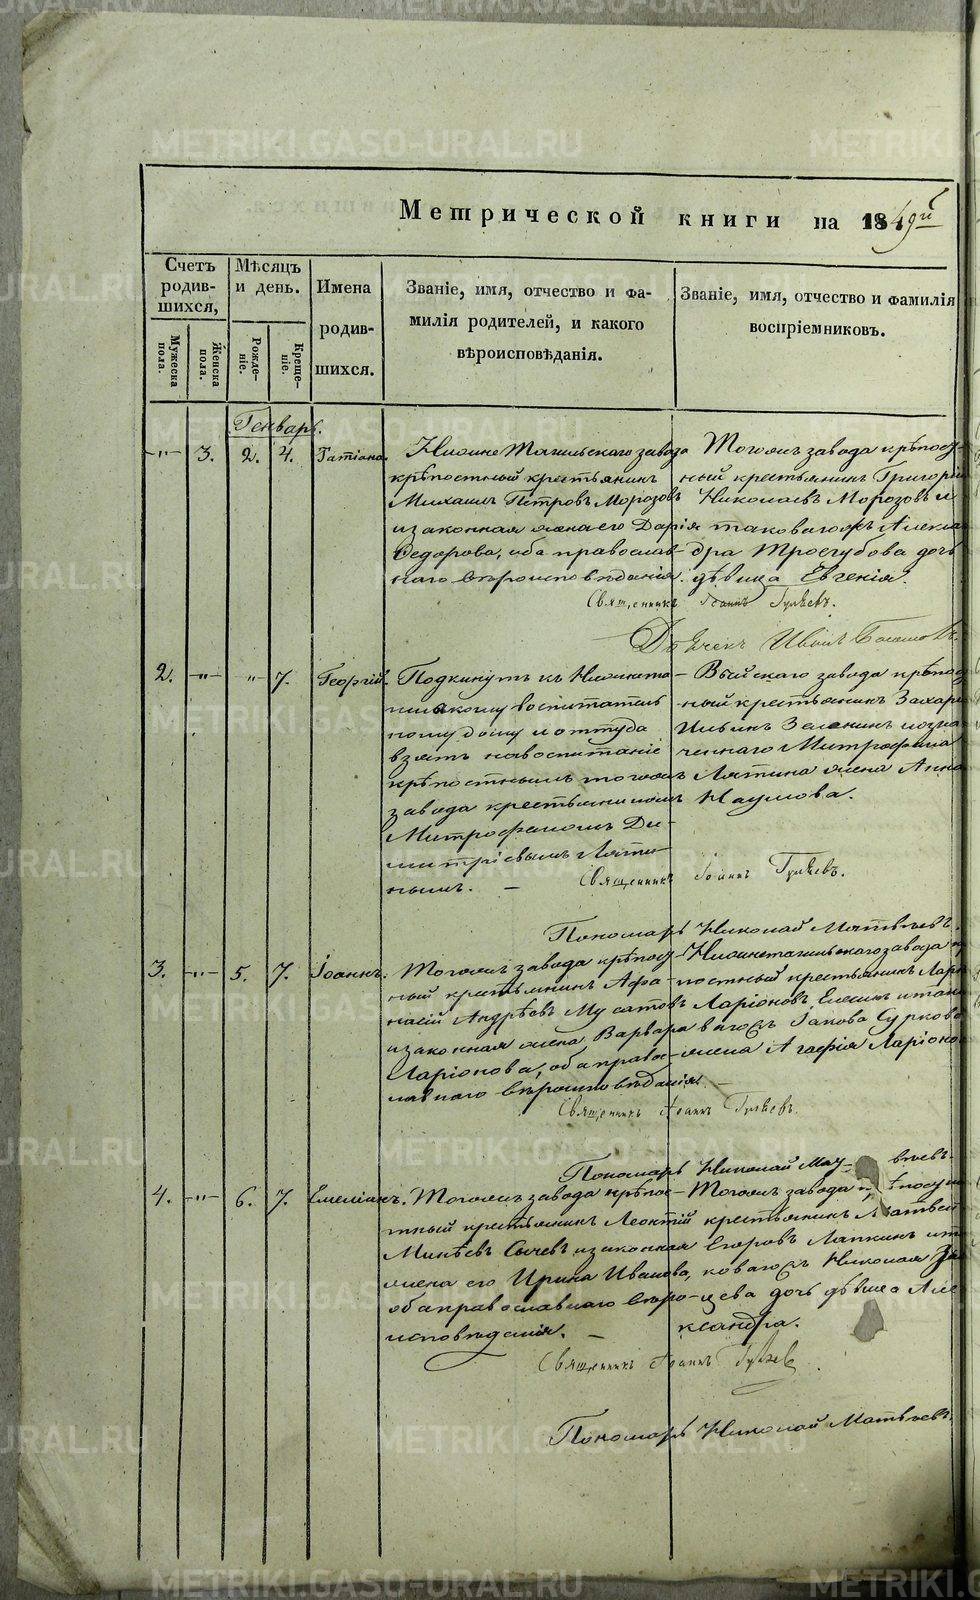 METRIKI.GASO-URAL.RU
Метрической книги на 1849й
Счетъ родив-шихся,
Мѣсяцъ и день.
Имена родив-шихся.
Званіе, имя, отчество и фа-
милія родителей, и какого
вѣроисповѣданія.
Званіе, имя, отчество и фамилія
воспріемниковъ.
Мужеска пола.
Женска пола.
Рожде-ніе.
Креще-ніе.
Генварь.
-"- 3. 2. 4. Татіана.
Нижне Тагильскаго завода
крѣпостный крестьянинъ
Михаилъ Петровъ Морозовъ
и законная жена его Дарія
Ѳедорова, оба православ-
наго вѣроисповѣданія.
Тогожъ завода крѣпост-
ный крестьянинъ Григорій
Николаевъ Морозовъ и
таковагожъ Алекса
дра Тросгубова дочь
дѣвица Евгенія.
Священникъ Іоаннъ Гуляевъ.
Дьячекъ Иванъ
2. -"- " 7. Георгій.
Подкинутъ къ Нижнета-
гильскому воспитатель
ному дому и оттуда
взятъ на воспитаніе
крѣпостнымъ тогожъ
завода крестьяниномъ
Митрофаномъ Ди-
митріевымъ Ляпи-
нымъ. -
Выйскаго завода крѣпост
ный крестьянинъ Захарій
Ильинъ Зеленинъ и озна-
ченнаго Митрофана
Ляпина жена Анна
Наумова.
Священникъ Іоаннъ Гуляевъ.
Пономарь Николай Матвѣевъ.
3. -"- 5. 7. Іоаннъ.
Тогожъ завода крѣпост-
ный крестьянинъ Афа-
насій Андрѣевъ Мусатовъ
и законная жена, Варвара
Ларіонова, оба право-
славнаго вѣроисповѣданія. -
Нижнетагильскаго завода кр
постный крестьянинъ Лар
Ларіоновъ и так
вагожъ Іакова Сурково
жена Агафія Ларіоно
Священникъ Іоаннъ Гуляевъ.
Пономарь Николай Мат вѣевъ.
4. -"- 6. 7. Емеліанъ.
Тогожъ завода крѣпос-
тный крестьянинъ Леонтій
Минѣевъ Сычевъ и законная
жена его Ирина Иванова,
оба православнаго вѣро-
исповѣданія. -
Тогожъ завода к ѣпостн
крестьянинъ Матвей
Егоровъ Лапкинъ и та
ковагожъ Николая За
цева дочь дѣвица Але
ксандра.
Священникъ Іоаннъ Гуляев
Пономарь Николай Матвѣевъ.